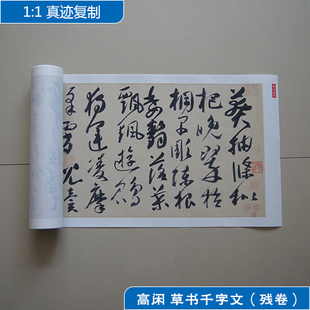 1:1 真迹复制
莽抽條枇
杷晚翠梧
桐早彫陳根
委翳落葉
飄颻遊鵾
獨運凌摩
絳霄耽讀
高闲 草书千字文（残卷）